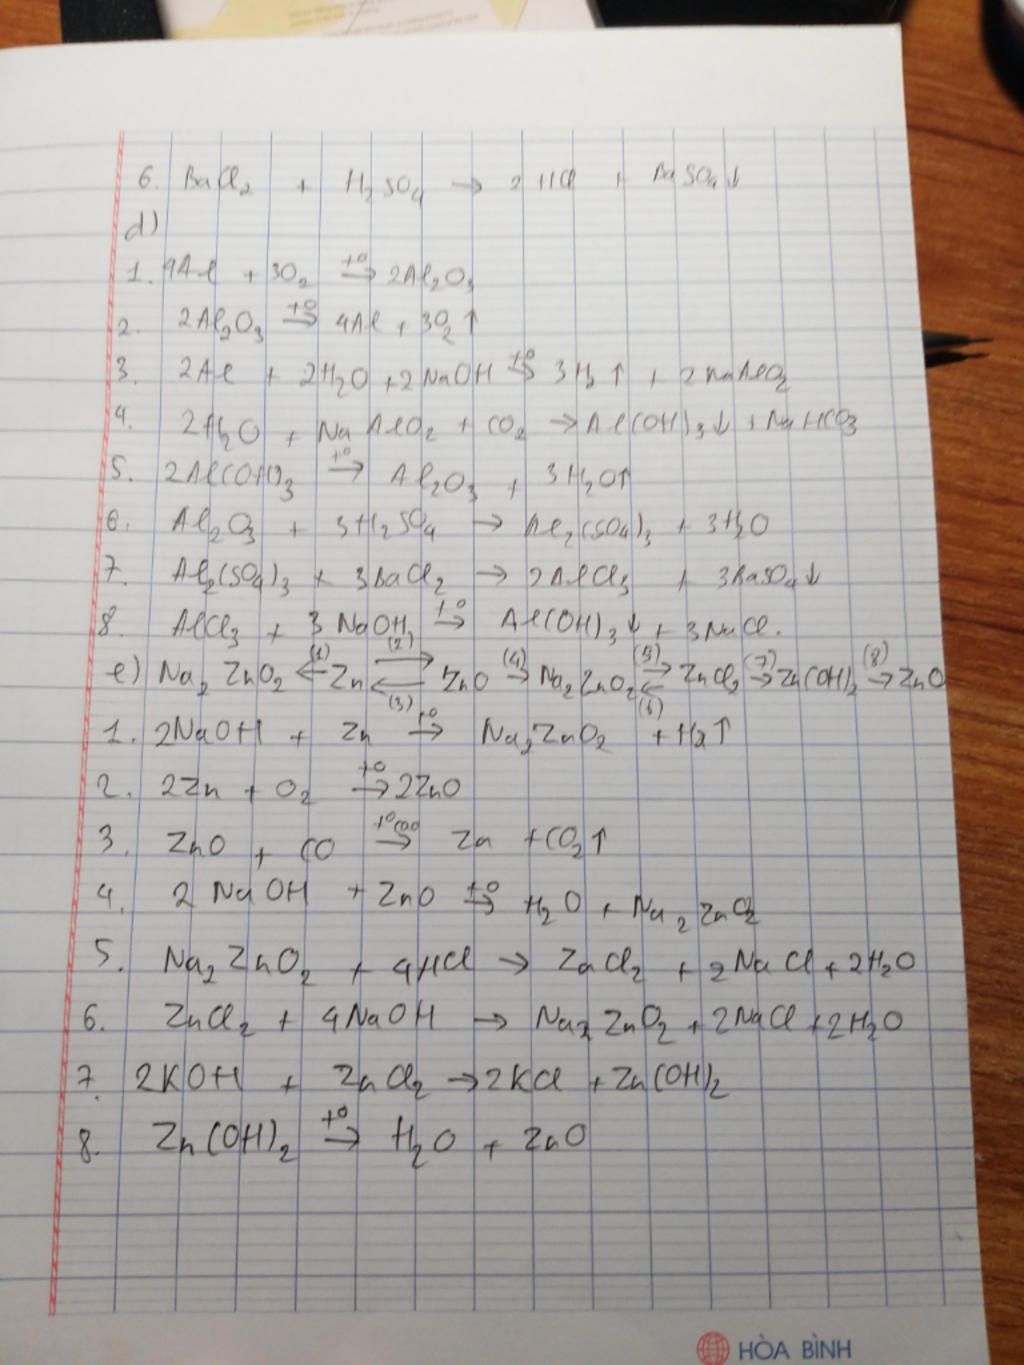 6. BaCl₂ + H₂SO₄ → 2HCl + BaSO₄↓
d)
1. 4Al + 3O₂ →(t°) 2Al₂O₃
2. 2Al₂O₃ →(t°) 4Al + 3O₂↑
3. 2Al + 2H₂O + 2NaOH →(t°) 3H₂↑ + 2NaAlO₂
4. 2H₂O + NaAlO₂ + CO₂ → Al(OH)₃↓ + NaHCO₃
5. 2Al(OH)₃ →(t°) Al₂O₃ + 3H₂O↑
6. Al₂O₃ + 3H₂SO₄ → Al₂(SO₄)₃ + 3H₂O
7. Al₂(SO₄)₃ + 3BaCl₂ → 2AlCl₃ + 3BaSO₄↓
8. AlCl₃ + 3NaOH →(t°) Al(OH)₃↓ + 3NaCl.
e) Na₂ZnO₂ ←(1) Zn (2)⇄(3) ZnO →(4) Na₂ZnO₂ (5)⇄(6) ZnCl₂ →(7) Zn(OH)₂ →(8) ZnO
1. 2NaOH + Zn →(t°) Na₂ZnO₂ + H₂↑
2. 2Zn + O₂ →(t°) 2ZnO
3. ZnO + CO →(t° cao) Zn + CO₂↑
4. 2NaOH + ZnO →(t°) H₂O + Na₂ZnO₂
5. Na₂ZnO₂ + 4HCl → ZnCl₂ + 2NaCl + 2H₂O
6. ZnCl₂ + 4NaOH → Na₂ZnO₂ + 2NaCl + 2H₂O
7. 2KOH + ZnCl₂ → 2KCl + Zn(OH)₂
8. Zn(OH)₂ →(t°) H₂O + ZnO
HÒA BÌNH